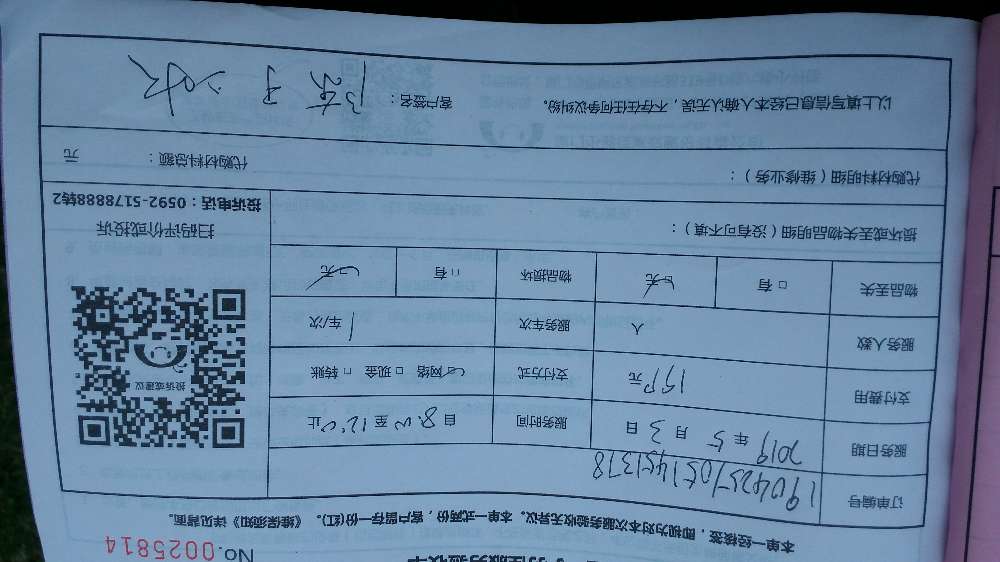 No.0025814
本单一经核签，即视为对本次服务验收无异议。本单一式两份，客户留存一份(红)。《维保须知》详见背面。
订单编号
服务日期 2019 年 5 月 3 日 服务时间 自 8:00 至 12:00 止
支付费用 199 元 支付方式 ☑网络 □现金 □转账
服务人数 人 服务车次 1 车/次
物品丢失 □有 ☑无 物品损坏 □有 ☑无
投诉或建议
扫码评价或投诉
投诉电话：0592-5178888转2
损坏或丢失物品明细（没有可不填）：
代购材料明细（维修业务）： 代购材料总额： 元
以上填写信息已经本人确认无误，不存在任何争议纠纷。 客户签名：